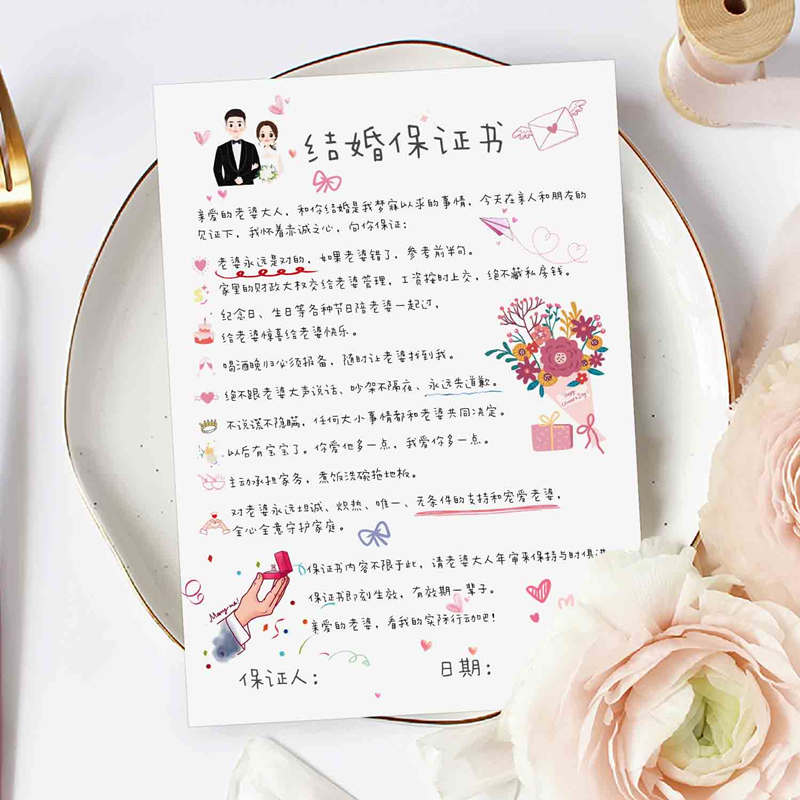 结婚保证书
亲爱的老婆大人，和你结婚是我梦寐以求的事情，今天在亲人和朋友的
见证下，我怀着赤诚之心，向你保证：
老婆永远是对的，如果老婆错了，参考前半句。
家里的财政大权交给老婆管理，工资按时上交，绝不藏私房钱。
纪念日、生日等各种节日陪老婆一起过，
给老婆惊喜给老婆快乐。
喝酒晚归必须报备，随时让老婆找到我。
绝不跟老婆大声说话、吵架不隔夜、永远先道歉。
不说谎不隐瞒，任何大小事情都和老婆共同决定。
以后有宝宝了。你爱他多一点，我爱你多一点。
主动承担家务，煮饭洗碗拖地板。
对老婆永远坦诚、炽热、唯一、无条件的支持和宠爱老婆，
全心全意守护家庭。
Happy
Women's Day!
Marry me
保证书内容不限于此，请老婆大人年审来保持与时俱进
保证书即刻生效，有效期一辈子。
亲爱的老婆，看我的实际行动吧！
保证人：
日期：